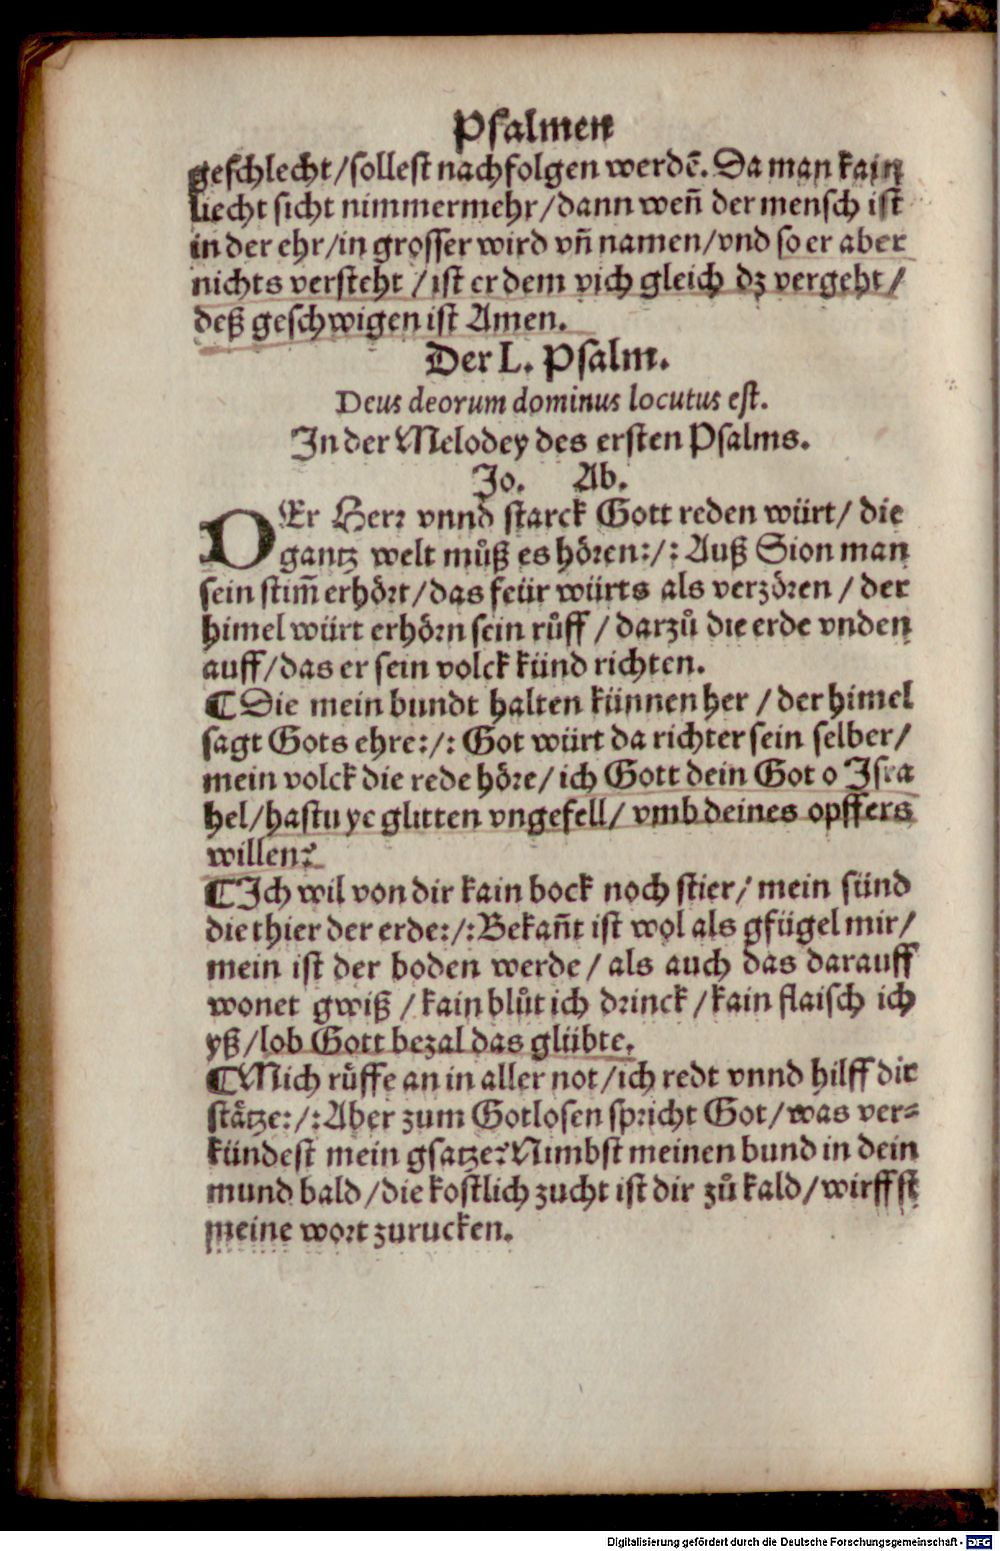 Psalmen
geschlecht/sollest nachfolgen werdē. Da man kain
liecht sicht nimmermehr/dann weñ der mensch ist
in der ehr/in grosser wird vñ namen/vnd so er aber
nichts versteht /ist er dem vich gleich dz vergeht/
deß geschwigen ist Amen.
Der L. Psalm.
Deus deorum dominus locutus est.
In der Melodey des ersten Psalms.
Jo. Ab.
DEr Herr vnnd starck Gott reden würt/ die
gantz welt můß es hören:/: Auß Sion man
sein stim̄ erhört/das feür würts als verzören / der
himel würt erhörn sein růff / darzů die erde vnden
auff/das er sein volck künd richten.
¶Die mein bundt halten künnen her /der himel
sagt Gots ehre:/: Got würt da richter sein selber/
mein volck die rede höre/ich Gott dein Got o Isra
hel/hastu ye glitten vngefell/ vmb deines opffers
willen?
¶Ich wil von dir kain bock noch stier/ mein sünd
die thier der erde:/:Bekañt ist wol als gfügel mir/
mein ist der boden werde/ als auch das darauff
wonet gwiß /kain blůt ich drinck/kain flaisch ich
yß/lob Gott bezal das glübte.
¶Mich růffe an in aller not/ich redt vnnd hilff dir
stätze:/:Aber zum Gotlosen spricht Got/was ver-
kündest mein gsatze? Nimbst meinen bund in dein
mund bald/die kostlich zucht ist dir zů kald/wirffst
meine wort zurucken.
Digitalisierung gefördert durch die Deutsche Forschungsgemeinschaft - DFG